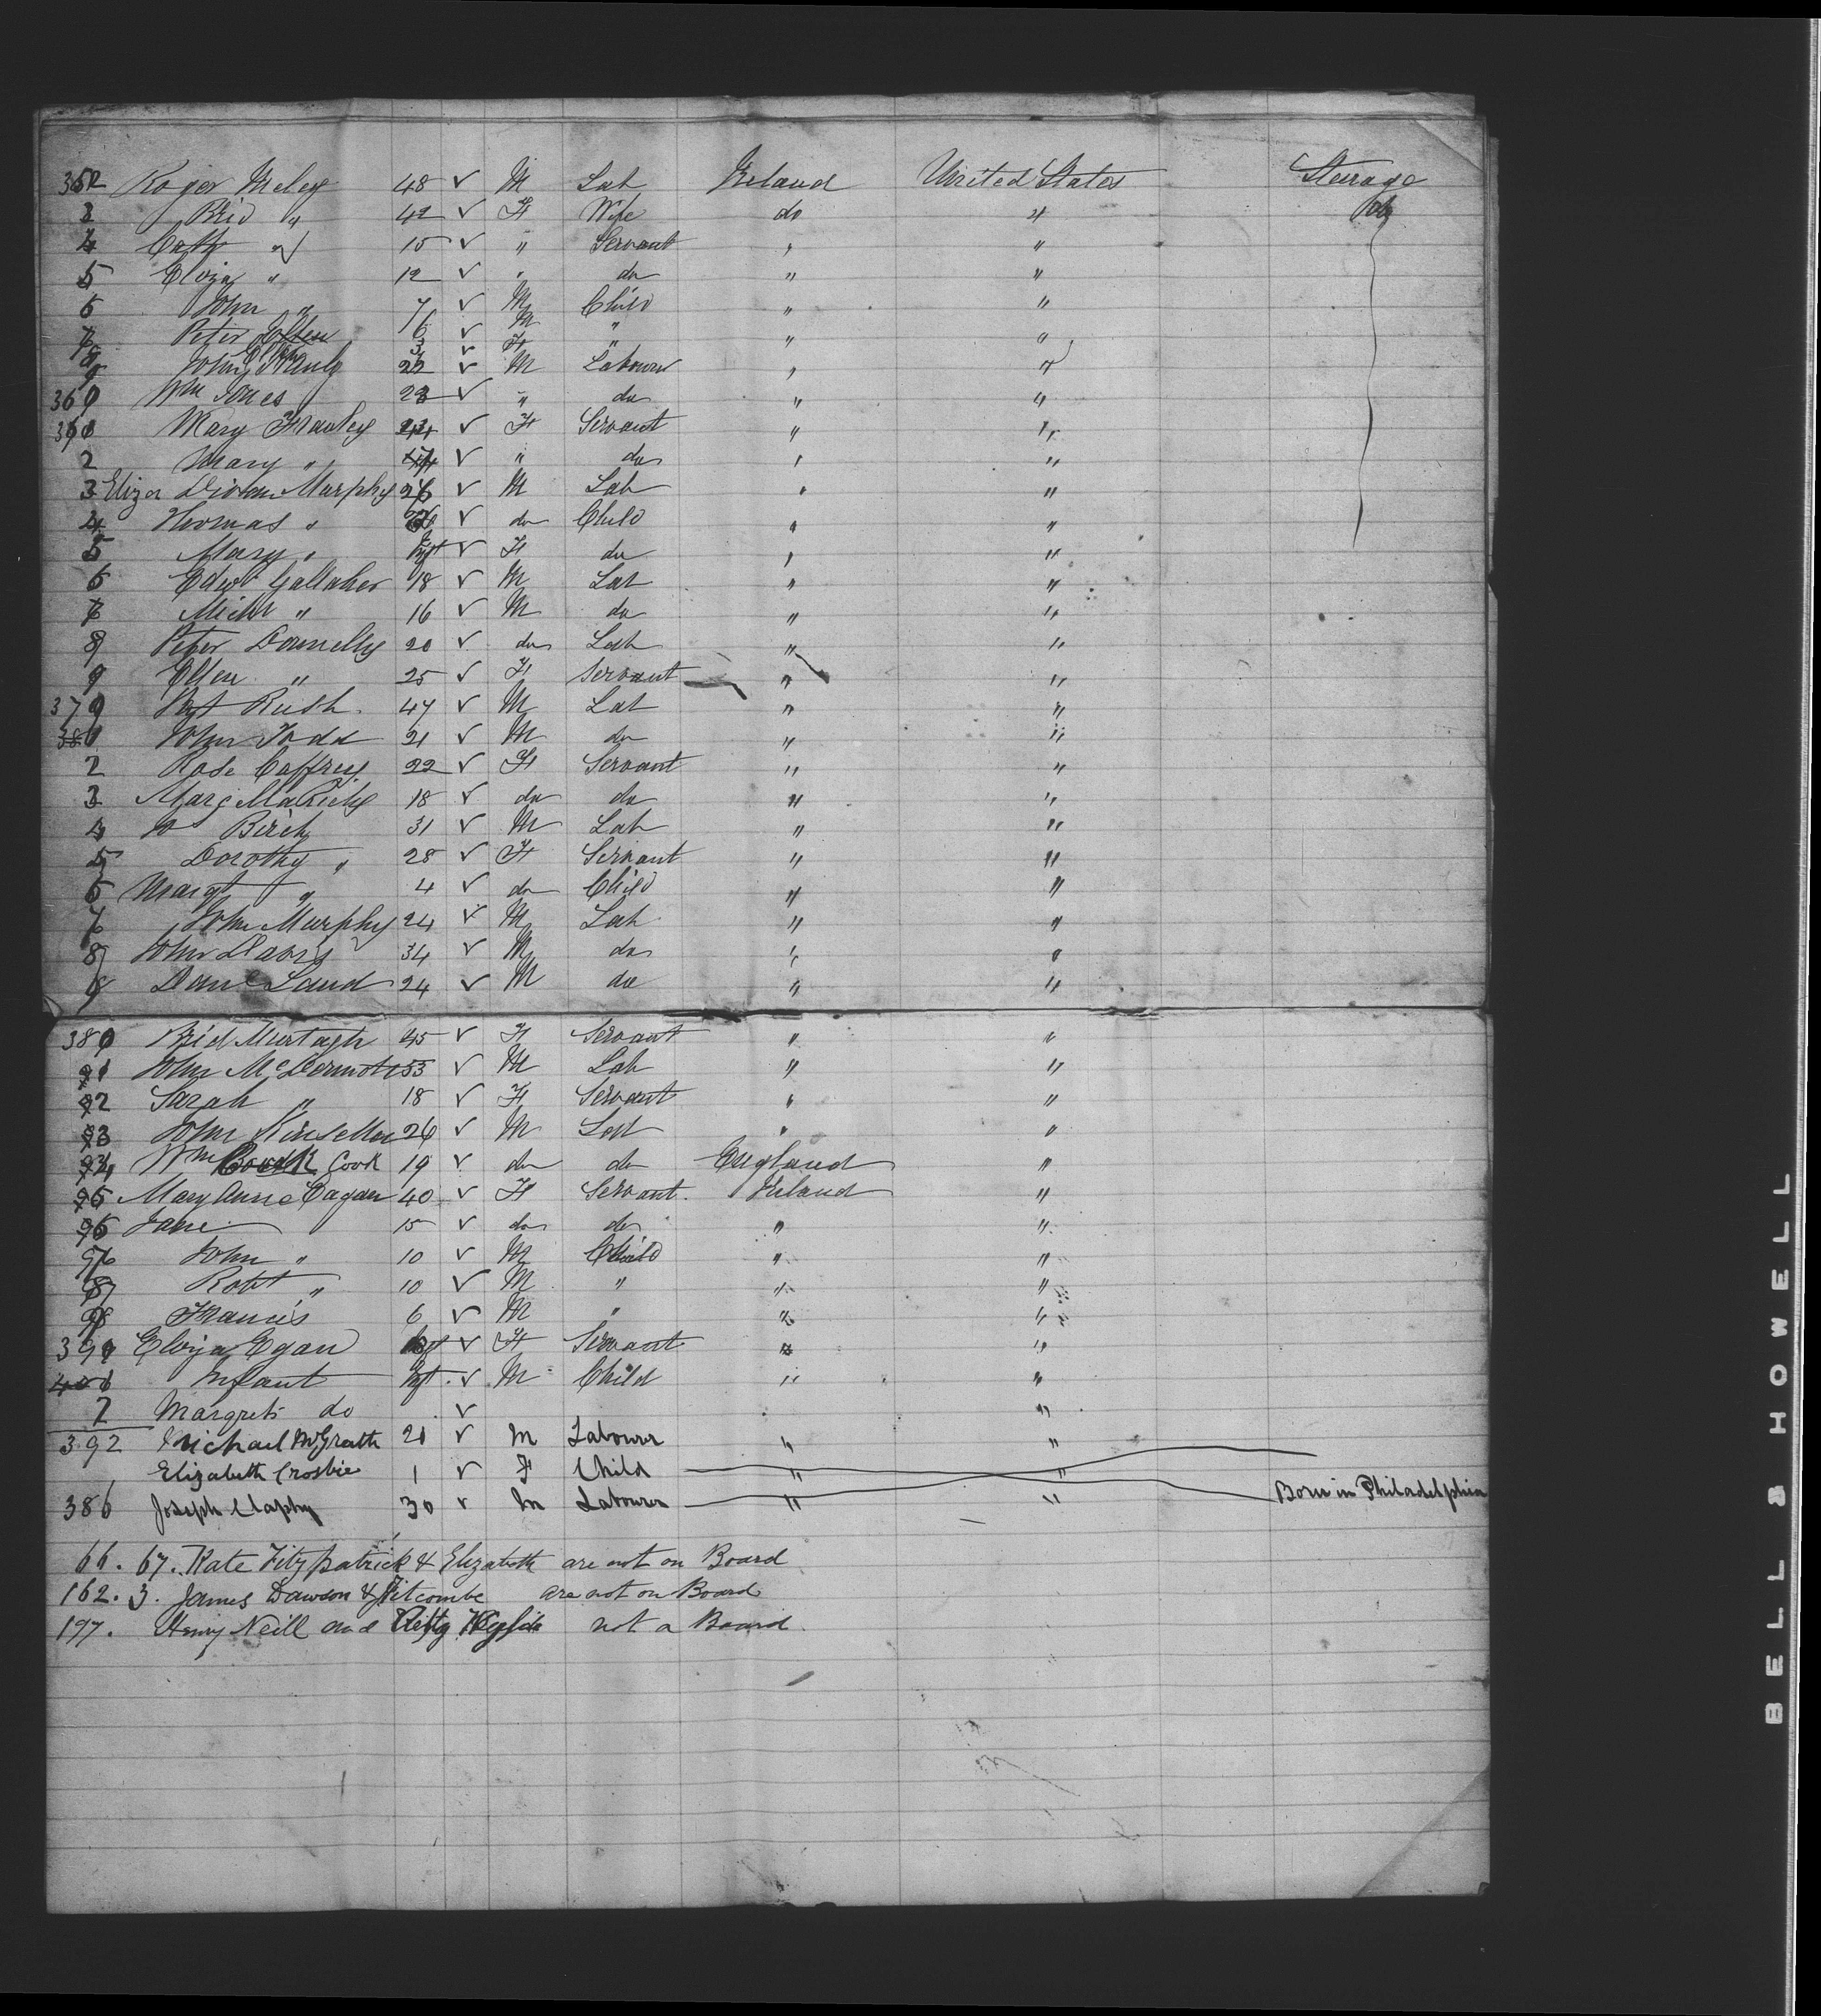 352 Roger Meley 48 ✓ M Lab Ireland United States Steerage
3 Brid " 42 ✓ F Wife do "
4 Cath " 15 ✓ " Servant " "
5 Eliza " 12 ✓ " do " "
6 John " 7 ✓ M Child " "
Peter 6 ✓ M " " "
Ellen 3 ✓ F "
John 22 ✓ M Labourer " "
360 Wm Jones 23 ✓ " do " "
Mary Frawley ✓ F Servant " "
2 Mary " ✓ " do " "
3 Eliza Murphy 26 ✓ M Lab " "
4 Thomas " ✓ do Child " "
5 Mary " Inft ✓ F do " "
6 Edwd Gallaher 18 ✓ M Lab " "
Michl " 16 ✓ M do " "
8 Peter Donnelly 20 ✓ do Lab " "
9 Ellen " 25 ✓ F Servant " "
370 Pat Rush 47 ✓ M Lab " "
John Todd 21 ✓ M do " "
2 Rose Caffrey 22 ✓ F Servant " "
3 Marg 18 ✓ do do " "
4 Birch 31 ✓ M Lab " "
5 Dorothy " 28 ✓ F Servant " "
6 Margt " 4 ✓ do Child " "
7 John Murphy 24 ✓ M Lab " "
8 John Davis 34 ✓ M do " "
9 Danl Laud 24 ✓ M do " "
380 Brid Murtagh 45 ✓ F Servant " "
1 John McDermott 53 ✓ M Lab " "
2 Sarah " 18 ✓ F Servant " "
3 John Kinsella 26 ✓ M Lab " "
4 Wm Cook 19 ✓ do do England "
5 Mary Anne Eagan 40 ✓ F Servant Ireland "
Jane 15 ✓ do do " "
6 John " 10 ✓ M Child " "
7 Robt " 10 ✓ M " " "
8 Francis 6 ✓ M " " "
39 Eliza Egan ✓ F Servant " "
Infant Inft ✓ M Child " "
2 Margrets do ✓ "
392 Michael McGrath 21 ✓ M Labourer " "
Elizabeth Crosbie 1 ✓ F Child " "
386 Joseph Claphy 30 ✓ M Labourer " " Born in Philadelphia
66. 67. Kate Fitzpatrick & Elizabeth are not on Board
162. 3. James Dawson & Titcombe are not on Board
197. Henry Neill and Kitty not a Board
BELL & HOWELL